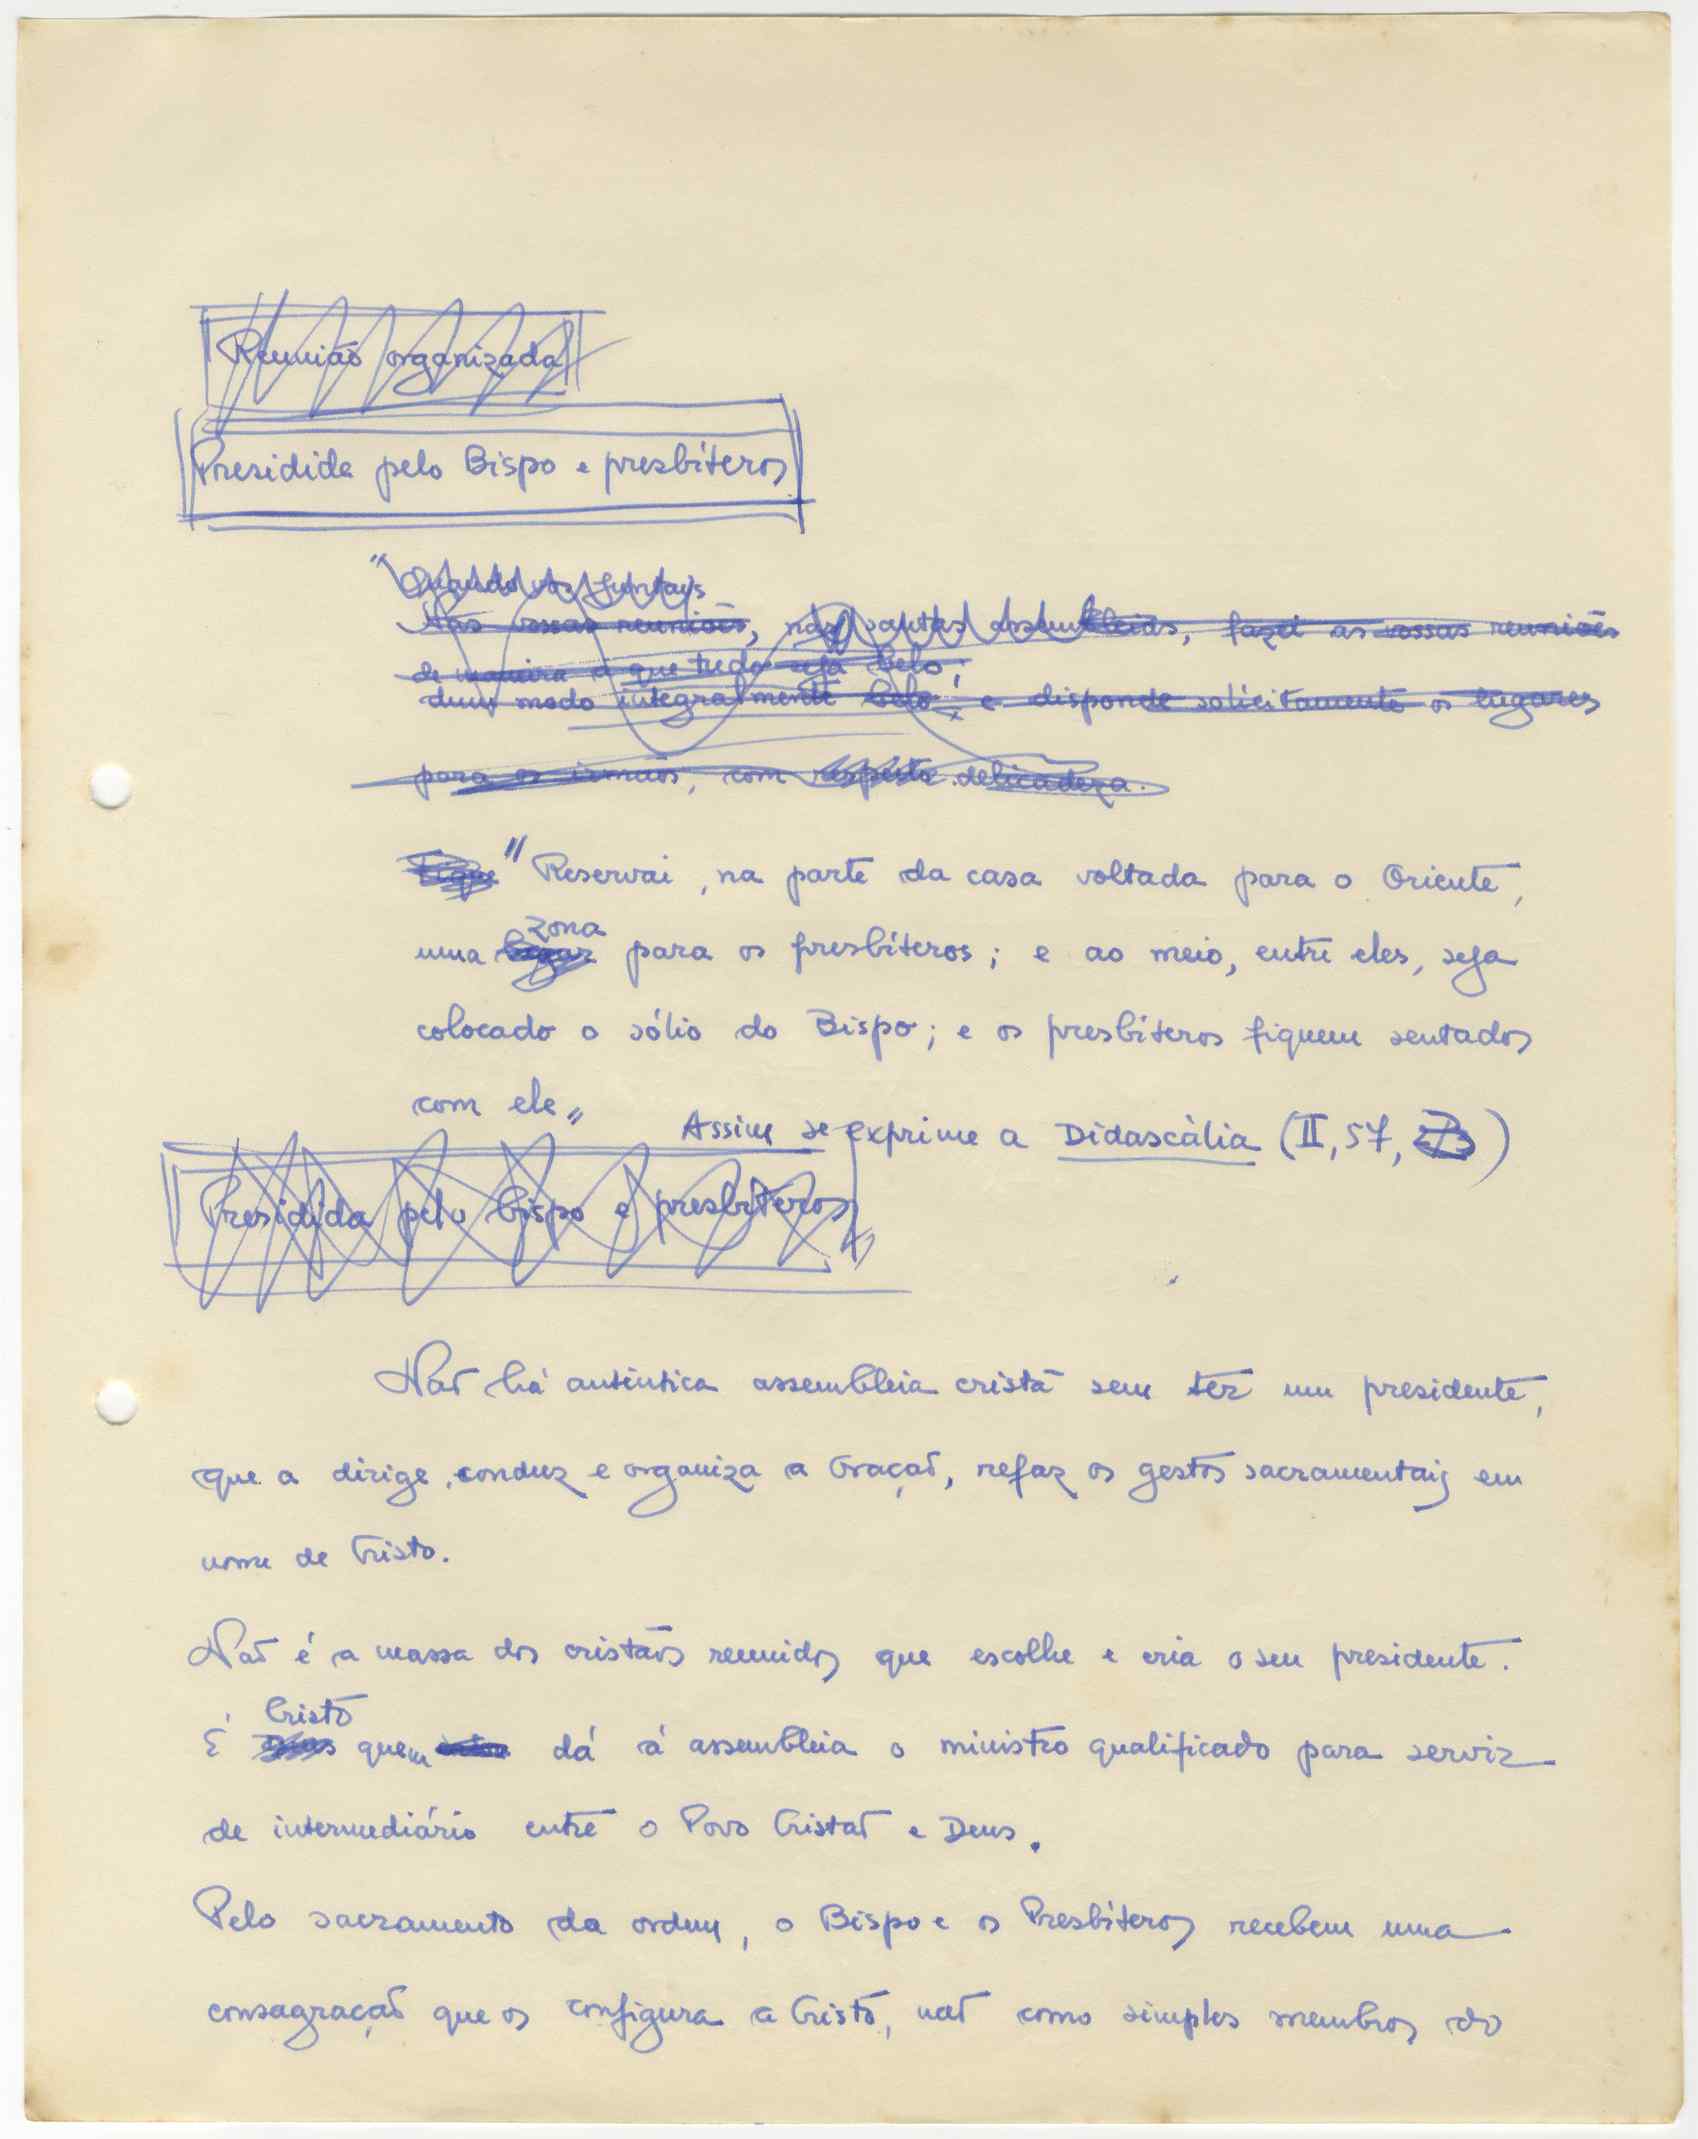 Reunião organizada
Presidida pelo Bispo e presbíteros
"Quando vos juntais
Nas vossas reuniões, nas santas assembleias, fazei as vossas reuniões
de maneira a que tudo seja belo;
dum modo integralmente belo; e disponde solicitamente os lugares
para os irmãos, com respeito delicadeza.
"Reservai, na parte da casa voltada para o Oriente,
zona
uma lugar para os presbíteros; e ao meio, entre eles, seja
colocado o sólio do Bispo; e os presbíteros fiquem sentados
com ele"
Assim se exprime a Didascália (II, 57, )
Presidida pelo bispo e presbíteros
Não há autêntica assembleia cristã sem ter um presidente,
que a dirige, conduz e organiza a Oração, refaz os gestos sacramentais em
nome de Cristo.
Não é a massa dos cristãos reunidos que escolhe e cria o seu presidente.
Cristo
É Deus quem dá à assembleia o ministro qualificado para servir
de intermediário entre o Povo Cristão e Deus.
Pelo sacramento da ordem, o Bispo e os Presbíteros recebem uma
consagração que os configura a Cristo, não como simples membros do